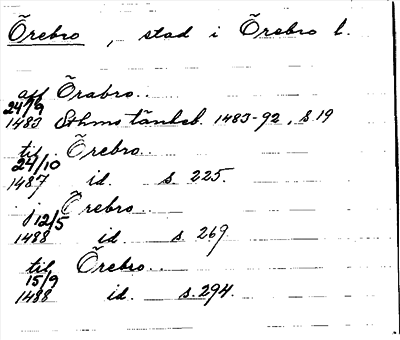 Örebro, stad i Örebro l.
aff Örabro..
24/9
1483 Sthms tänkeb. 1483-92, s 19
til Örebro..
24/10
1487 id. s. 225.
j Örebro..
12/5
1488 id s. 269
til Örebro..
15/9
1488 id. s. 294.